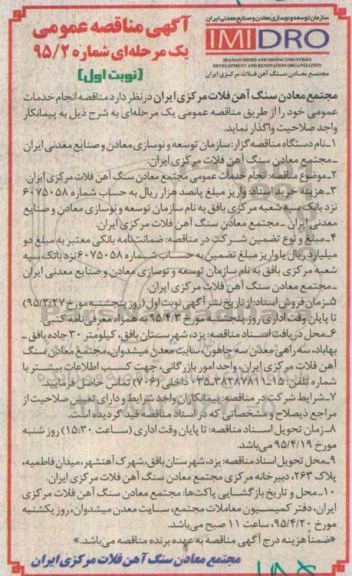 سازمان توسعه و نوسازی معادن و صنایع معدنی ایران
IMIDRO
IRANIAN MINES AND MINING INDUSTRIES
DEVELOPMENT AND RENOVATION ORGANIZATION
مجتمع معادن سنگ آهن فلات مرکزی ایران
آگهی مناقصه عمومی
یک مرحله‌ای شماره ۹۵/۲
(نوبت اول)
مجتمع معادن سنگ آهن فلات مرکزی ایران در نظر دارد مناقصه انجام خدمات
عمومی خود را از طریق مناقصه عمومی یک مرحله‌ای به شرح ذیل به پیمانکار
واجد صلاحیت واگذار نماید.
۱-نام دستگاه مناقصه گزار: سازمان توسعه و نوسازی معادن و صنایع معدنی ایران
ـ مجتمع معادن سنگ آهن فلات مرکزی ایران.
۲-موضوع مناقصه: انجام خدمات عمومی مجتمع معادن سنگ آهن فلات مرکزی ایران.
۳-هزینه خرید اسناد: واریز مبلغ پانصد هزار ریال به حساب شماره ۶۰۷۵۰۵۸
نزد بانک سپه شعبه مرکزی بافق به نام سازمان توسعه و نوسازی معادن و صنایع
معدنی ایران ـ مجتمع معادن سنگ آهن فلات مرکزی ایران.
۴-مبلغ و نوع تضمین شرکت در مناقصه: ضمانت‌نامه بانکی معتبر به مبلغ دو
میلیارد ریال یا واریز مبلغ تضمین به حساب شماره ۶۰۷۵۰۵۸ نزد بانک سپه
شعبه مرکزی بافق به نام سازمان توسعه و نوسازی معادن و صنایع معدنی ایران
ـ مجتمع معادن سنگ آهن فلات مرکزی ایران.
۵-زمان فروش اسناد: از تاریخ نشر آگهی نوبت اول (روز پنجشنبه مورخ ۹۵/۳/۲۷)
تا پایان وقت اداری روز پنجشنبه مورخ ۹۵/۴/۳ به همراه معرفی‌نامه کتبی
۶-محل دریافت اسناد مناقصه: یزد، شهرستان بافق، کیلومتر ۳۰ جاده بافق ـ
بهاباد، سه راهی معدن سه چاهون، سایت معدن میشدوان، مجتمع معادن سنگ
آهن فلات مرکزی ایران، واحد امور بازرگانی، جهت کسب اطلاعات بیشتر با
شماره تلفن ۱۵-۳۸۲۸۷۸۱۱-۰۳۵ داخلی (۷۰۶) تماس حاصل فرمایید.
۷-شرایط شرکت در مناقصه: پیمانکاران واجد شرایط و دارای تعیین صلاحیت از
مراجع ذیصلاح و مشخصاتی که در اسناد مناقصه قید گردیده است.
۸-زمان تحویل اسناد مناقصه: تا پایان وقت اداری (ساعت ۱۵:۳۰) روز شنبه
مورخ ۹۵/۴/۱۹ می‌باشد.
۹-محل تحویل اسناد مناقصه: یزد، شهرستان بافق، شهرک آهنشهر، میدان فاطمیه،
پلاک ۲۶۳، دبیرخانه مرکزی مجتمع معادن سنگ آهن فلات مرکزی ایران.
۱۰-محل و تاریخ بازگشایی پاکت‌ها: مجتمع معادن سنگ آهن فلات مرکزی
ایران، دفتر کمیسیون معاملات مجتمع، سایت معدن میشدوان، روز یکشنبه
مورخ ۹۵/۴/۲۰، ساعت ۱۱ صبح می‌باشد.
«ضمنا هزینه درج آگهی مناقصه به عهده برنده مناقصه می‌باشد.»
مجتمع معادن سنگ آهن فلات مرکزی ایران